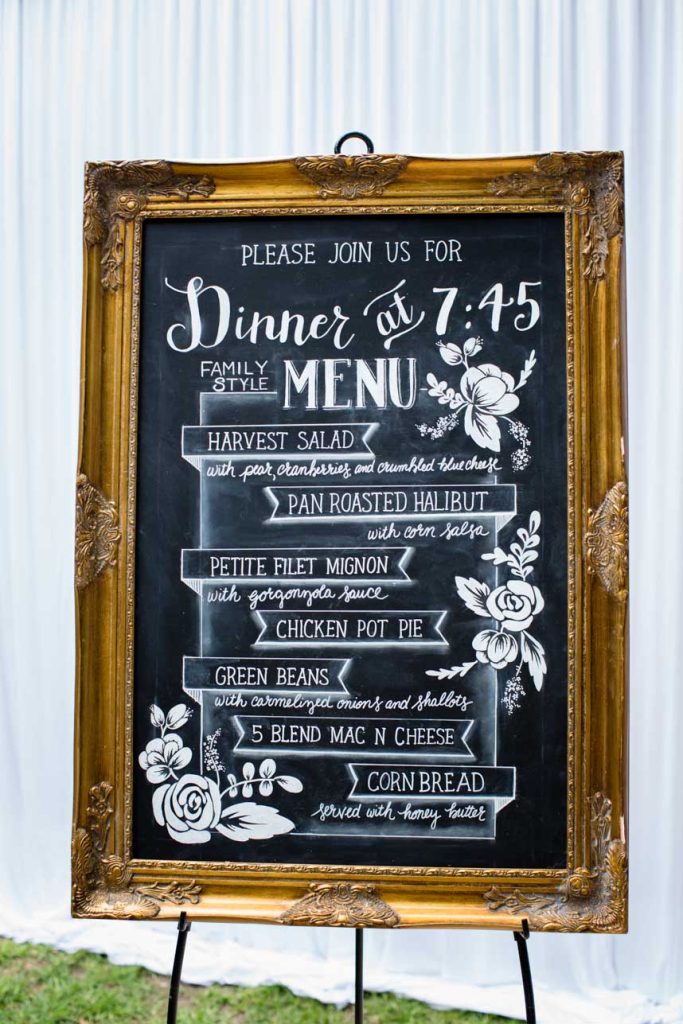 PLEASE JOIN US FOR
Dinner at 7:45
FAMILY STYLE MENU
HARVEST SALAD
with pear, cranberries, and crumbled blue cheese
PAN ROASTED HALIBUT
with corn salsa
PETITE FILET MIGNON
with gorgonzola sauce
CHICKEN POT PIE
GREEN BEANS
with carmelized onions and shallots
5 BLEND MAC N CHEESE
CORN BREAD
served with honey butter